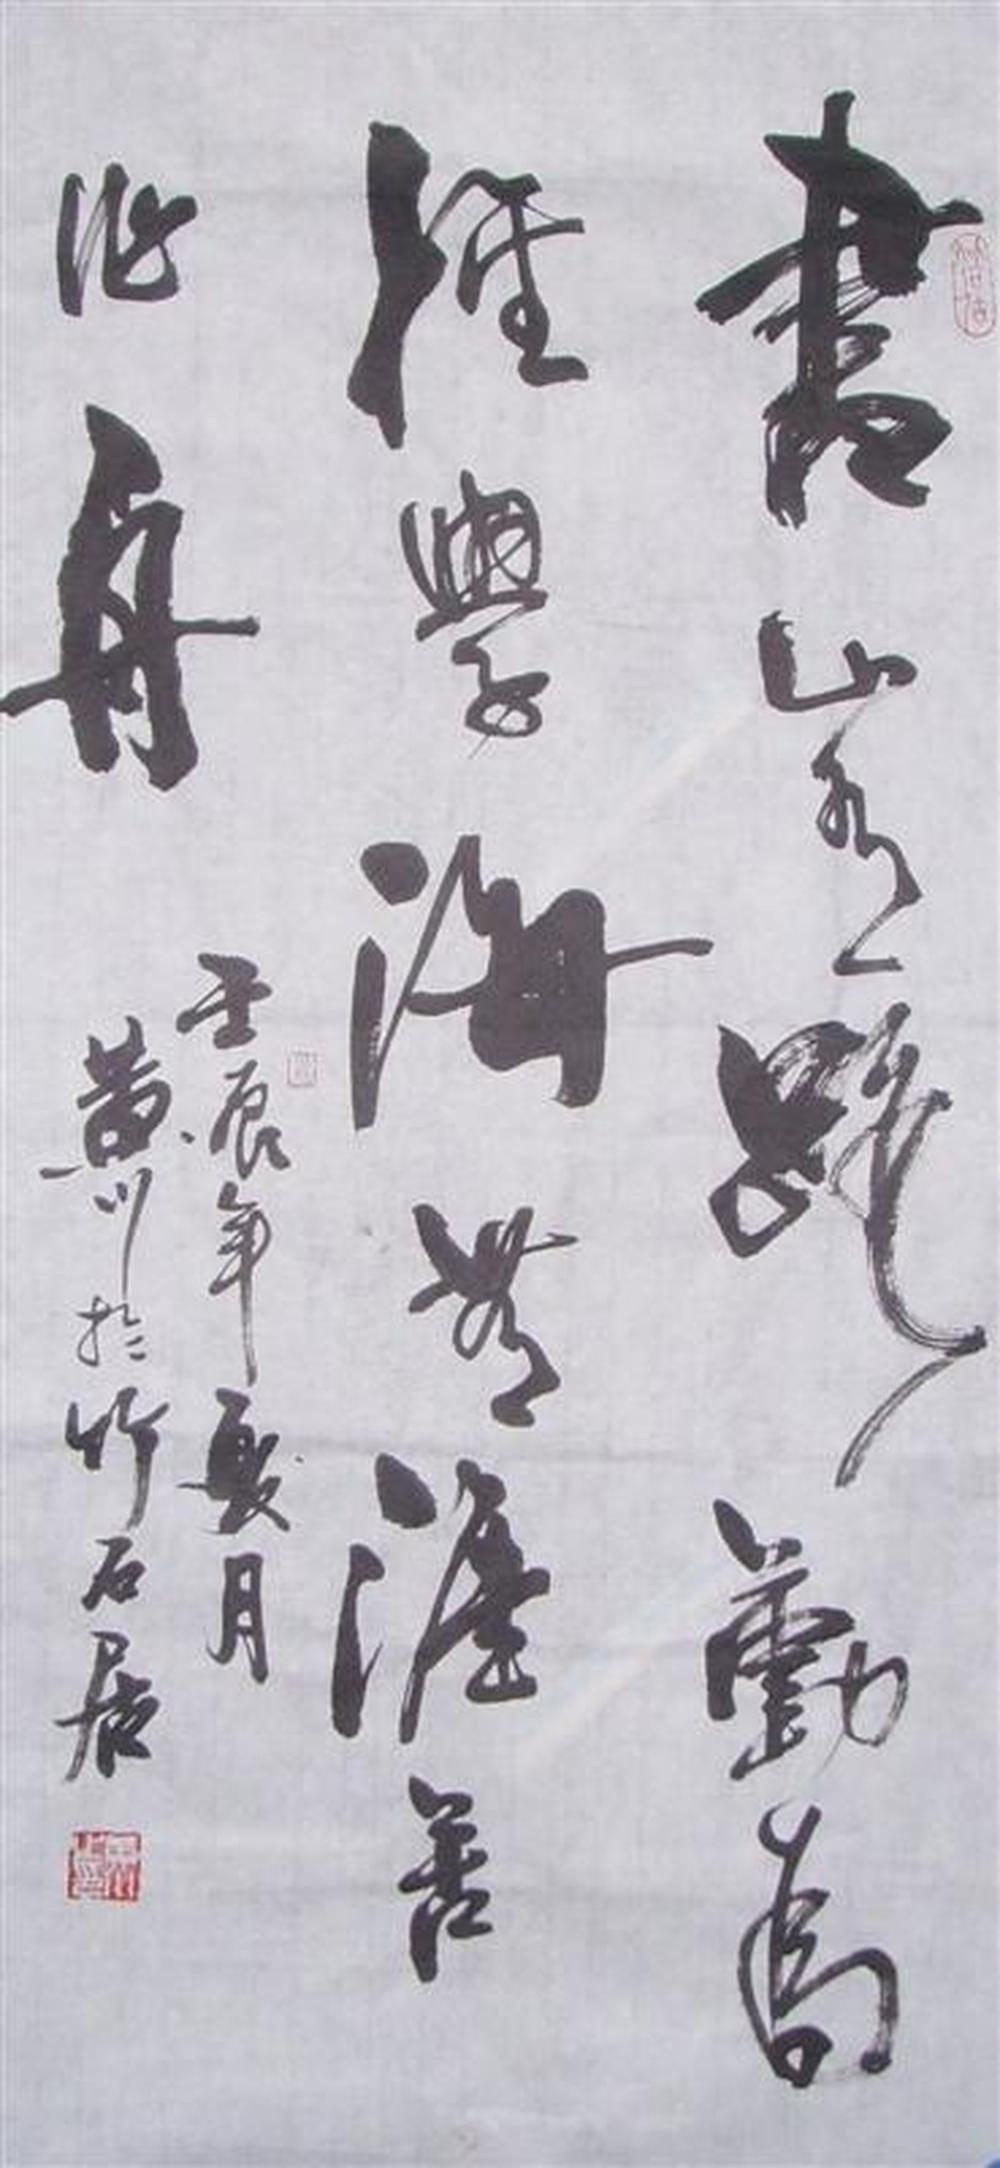 書山有路勤為
徑學海無涯苦
作舟
壬辰年夏月
黄川於竹石居